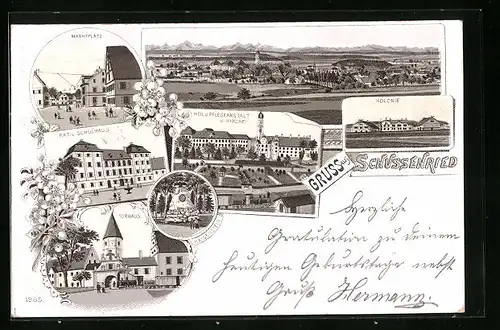 MARKTPLATZ
RAT- U. SCHULHAUS
HEIL U. PFLEGEANSTALT
U. KIRCHE
KOLONIE
GRUSS AUS
SCHUSSENRIED
TORHAUS
1965.
Herzliche
Gratulation zu deinem
heutigen Geburtstage nebst
Gruß Hermann.